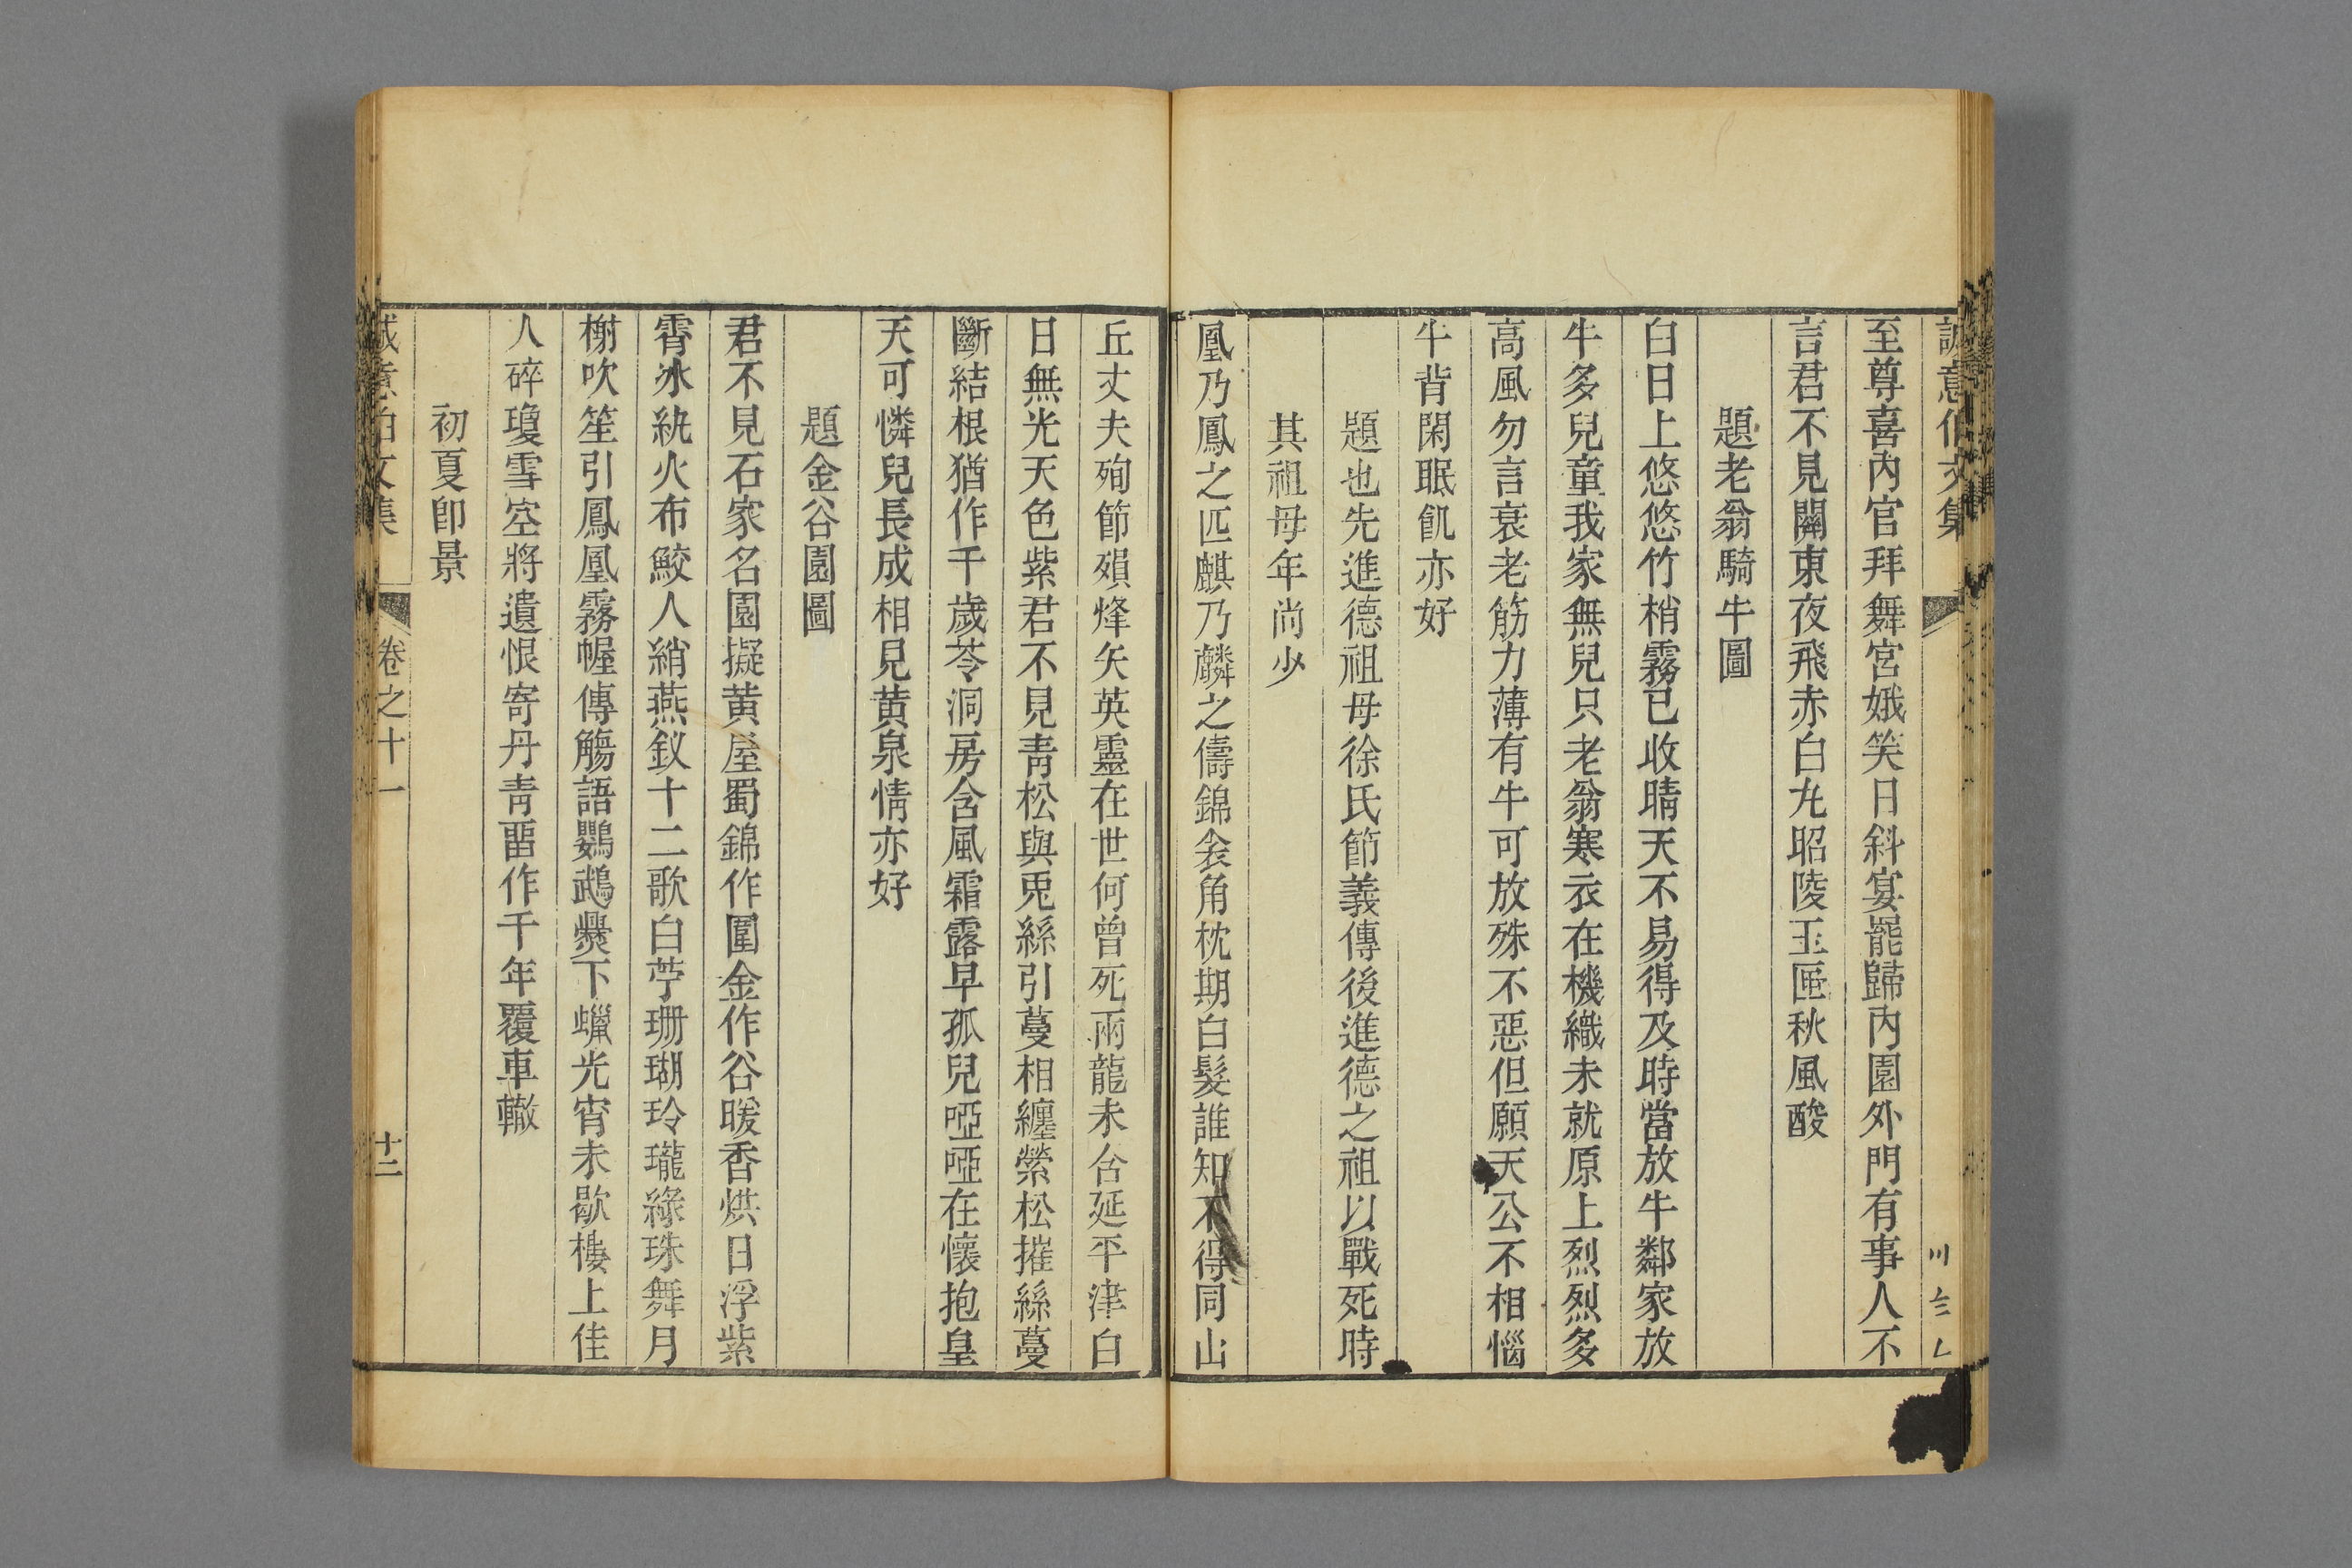 誠意伯文集
至尊喜內官拜舞宮娥笑日斜宴罷歸內園外門有事人不
言君不見關東夜飛赤白丸昭陵玉匣秋風酸
題老翁騎牛圖
白日上悠悠竹梢霧已收晴天不易得及時當放牛鄰家放
牛多兒童我家無兒只老翁寒衣在機織未就原上烈烈多
高風勿言衰老筋力薄有牛可放殊不惡但願天公不相惱
牛背閑眠飢亦好
題也先進德祖母徐氏節義傳後進德之祖以戰死時
其祖母年尚少
凰乃鳳之匹麒乃麟之儔錦衾角枕期白髮誰知不得同山
丘丈夫殉節殞烽矢英靈在世何曾死兩龍未合延平津白
日無光天色紫君不見靑松與兎絲引蔓相纏縈松摧絲蔓
斷結根猶作千歲苓洞房含風霜露早孤兒啞啞在懷抱皇
天可憐兒長成相見黄泉情亦好
題金谷園圖
君不見石家名園擬黄屋蜀錦作圍金作谷暖香烘日浮紫
霄冰紈火布鮫人綃燕釵十二歌白苧珊瑚玲瓏綠珠舞月
榭吹笙引鳳凰霧幄傳觴語鸚鵡爨下蠟光宵未歇樓上佳
人碎瓊雪空將遺恨寄丹靑畱作千年覆車轍
初夏卽景
誠意伯文集 卷之十一 十二